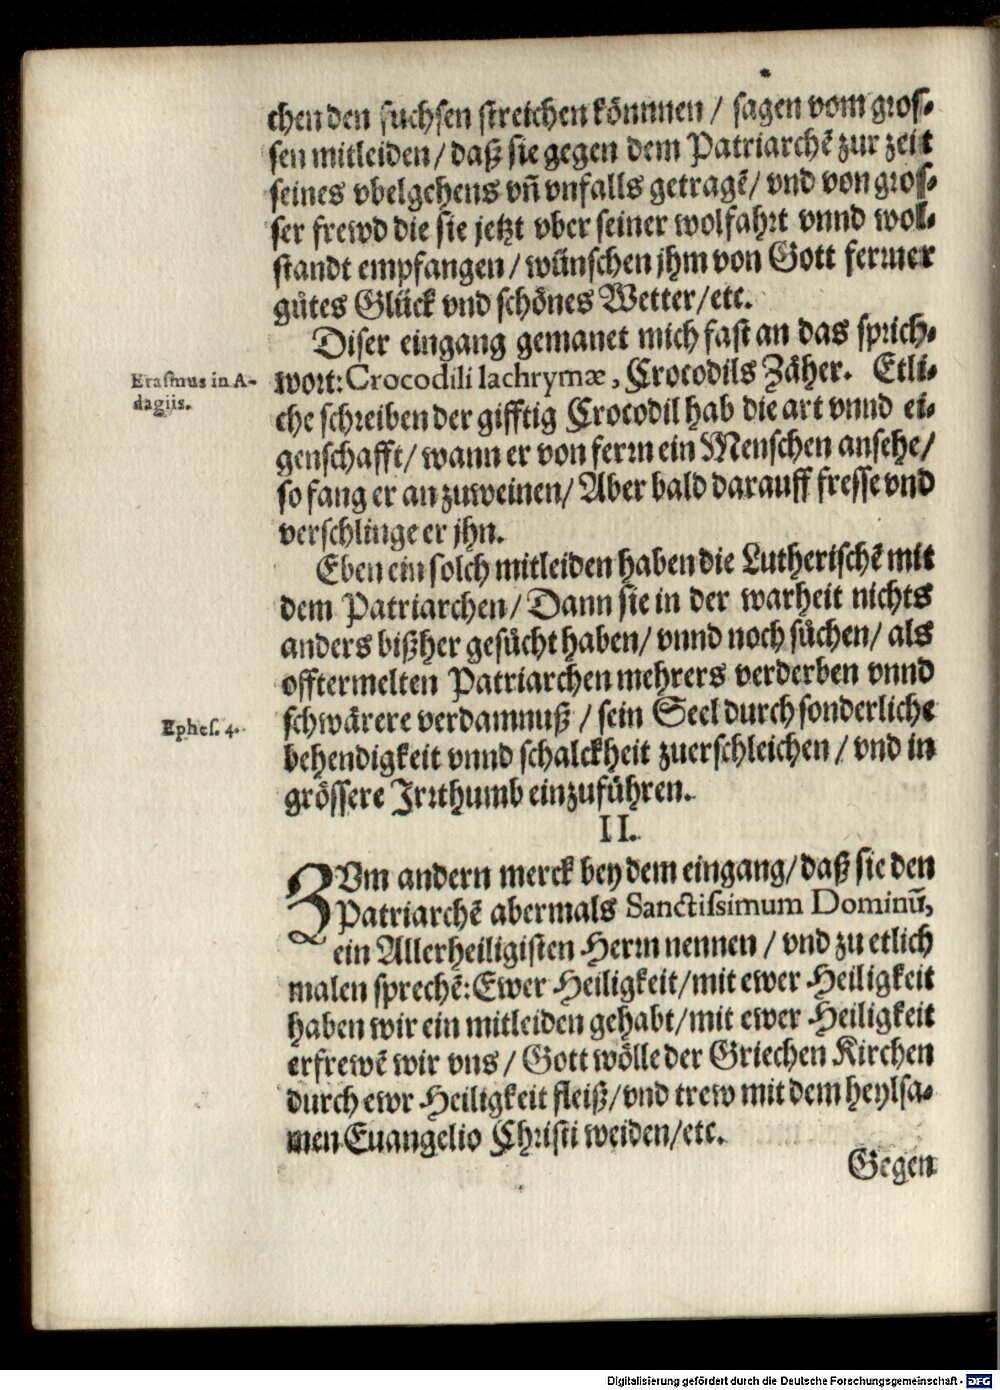 chen den fuchsen streichen könnnen / sagen vom gros-
sen mitleiden / daß sie gegen dem Patriarchē zur zeit
seines vbelgehens vn̄ vnfalls getragē / vnd von gros-
ser frewd die sie jetzt vber seiner wolfahrt vnnd wol-
standt empfangen / wünschen jhm von Gott ferrner
gůtes Glück vnd schönes Wetter / etc.
Diser eingang gemanet mich fast an das sprich-
Erasmus in A-
dagiis.
wort: Crocodili lachrymæ, Crocodils Zäher. Etli-
che schreiben der gifftig Crocodil hab die art vnnd ei-
genschafft / wann er von ferrn ein Menschen ansehe /
so fang er an zuweinen / Aber bald darauff fresse vnd
verschlinge er jhn.
Eben ein solch mitleiden haben die Lutherischē mit
dem Patriarchen / Dann sie in der warheit nichts
anders bißher gesůcht haben / vnnd noch sůchen / als
offtermelten Patriarchen mehrers verderben vnnd
Ephes. 4.
schwärere verdamnuß / sein Seel durch sonderliche
behendigkeit vnnd schalckheit zuerschleichen / vnd in
grössere Jrrthumb einzuführen.
II.
ZVm andern merck bey dem eingang / daß sie den
Patriarchē abermals Sanctissimum Dominū,
ein Allerheiligisten Herrn nennen / vnd zu etlich
malen sprechē: Ewer Heiligkeit / mit ewer Heiligkeit
haben wir ein mitleiden gehabt / mit ewer Heiligkeit
erfrewē wir vns / Gott wölle der Griechen Kirchen
durch ewr Heiligkeit fleiß / vnd trew mit dem heylsa-
men Euangelio Christi weiden / etc.
Gegen
Digitalisierung gefördert durch die Deutsche Forschungsgemeinschaft - DFG